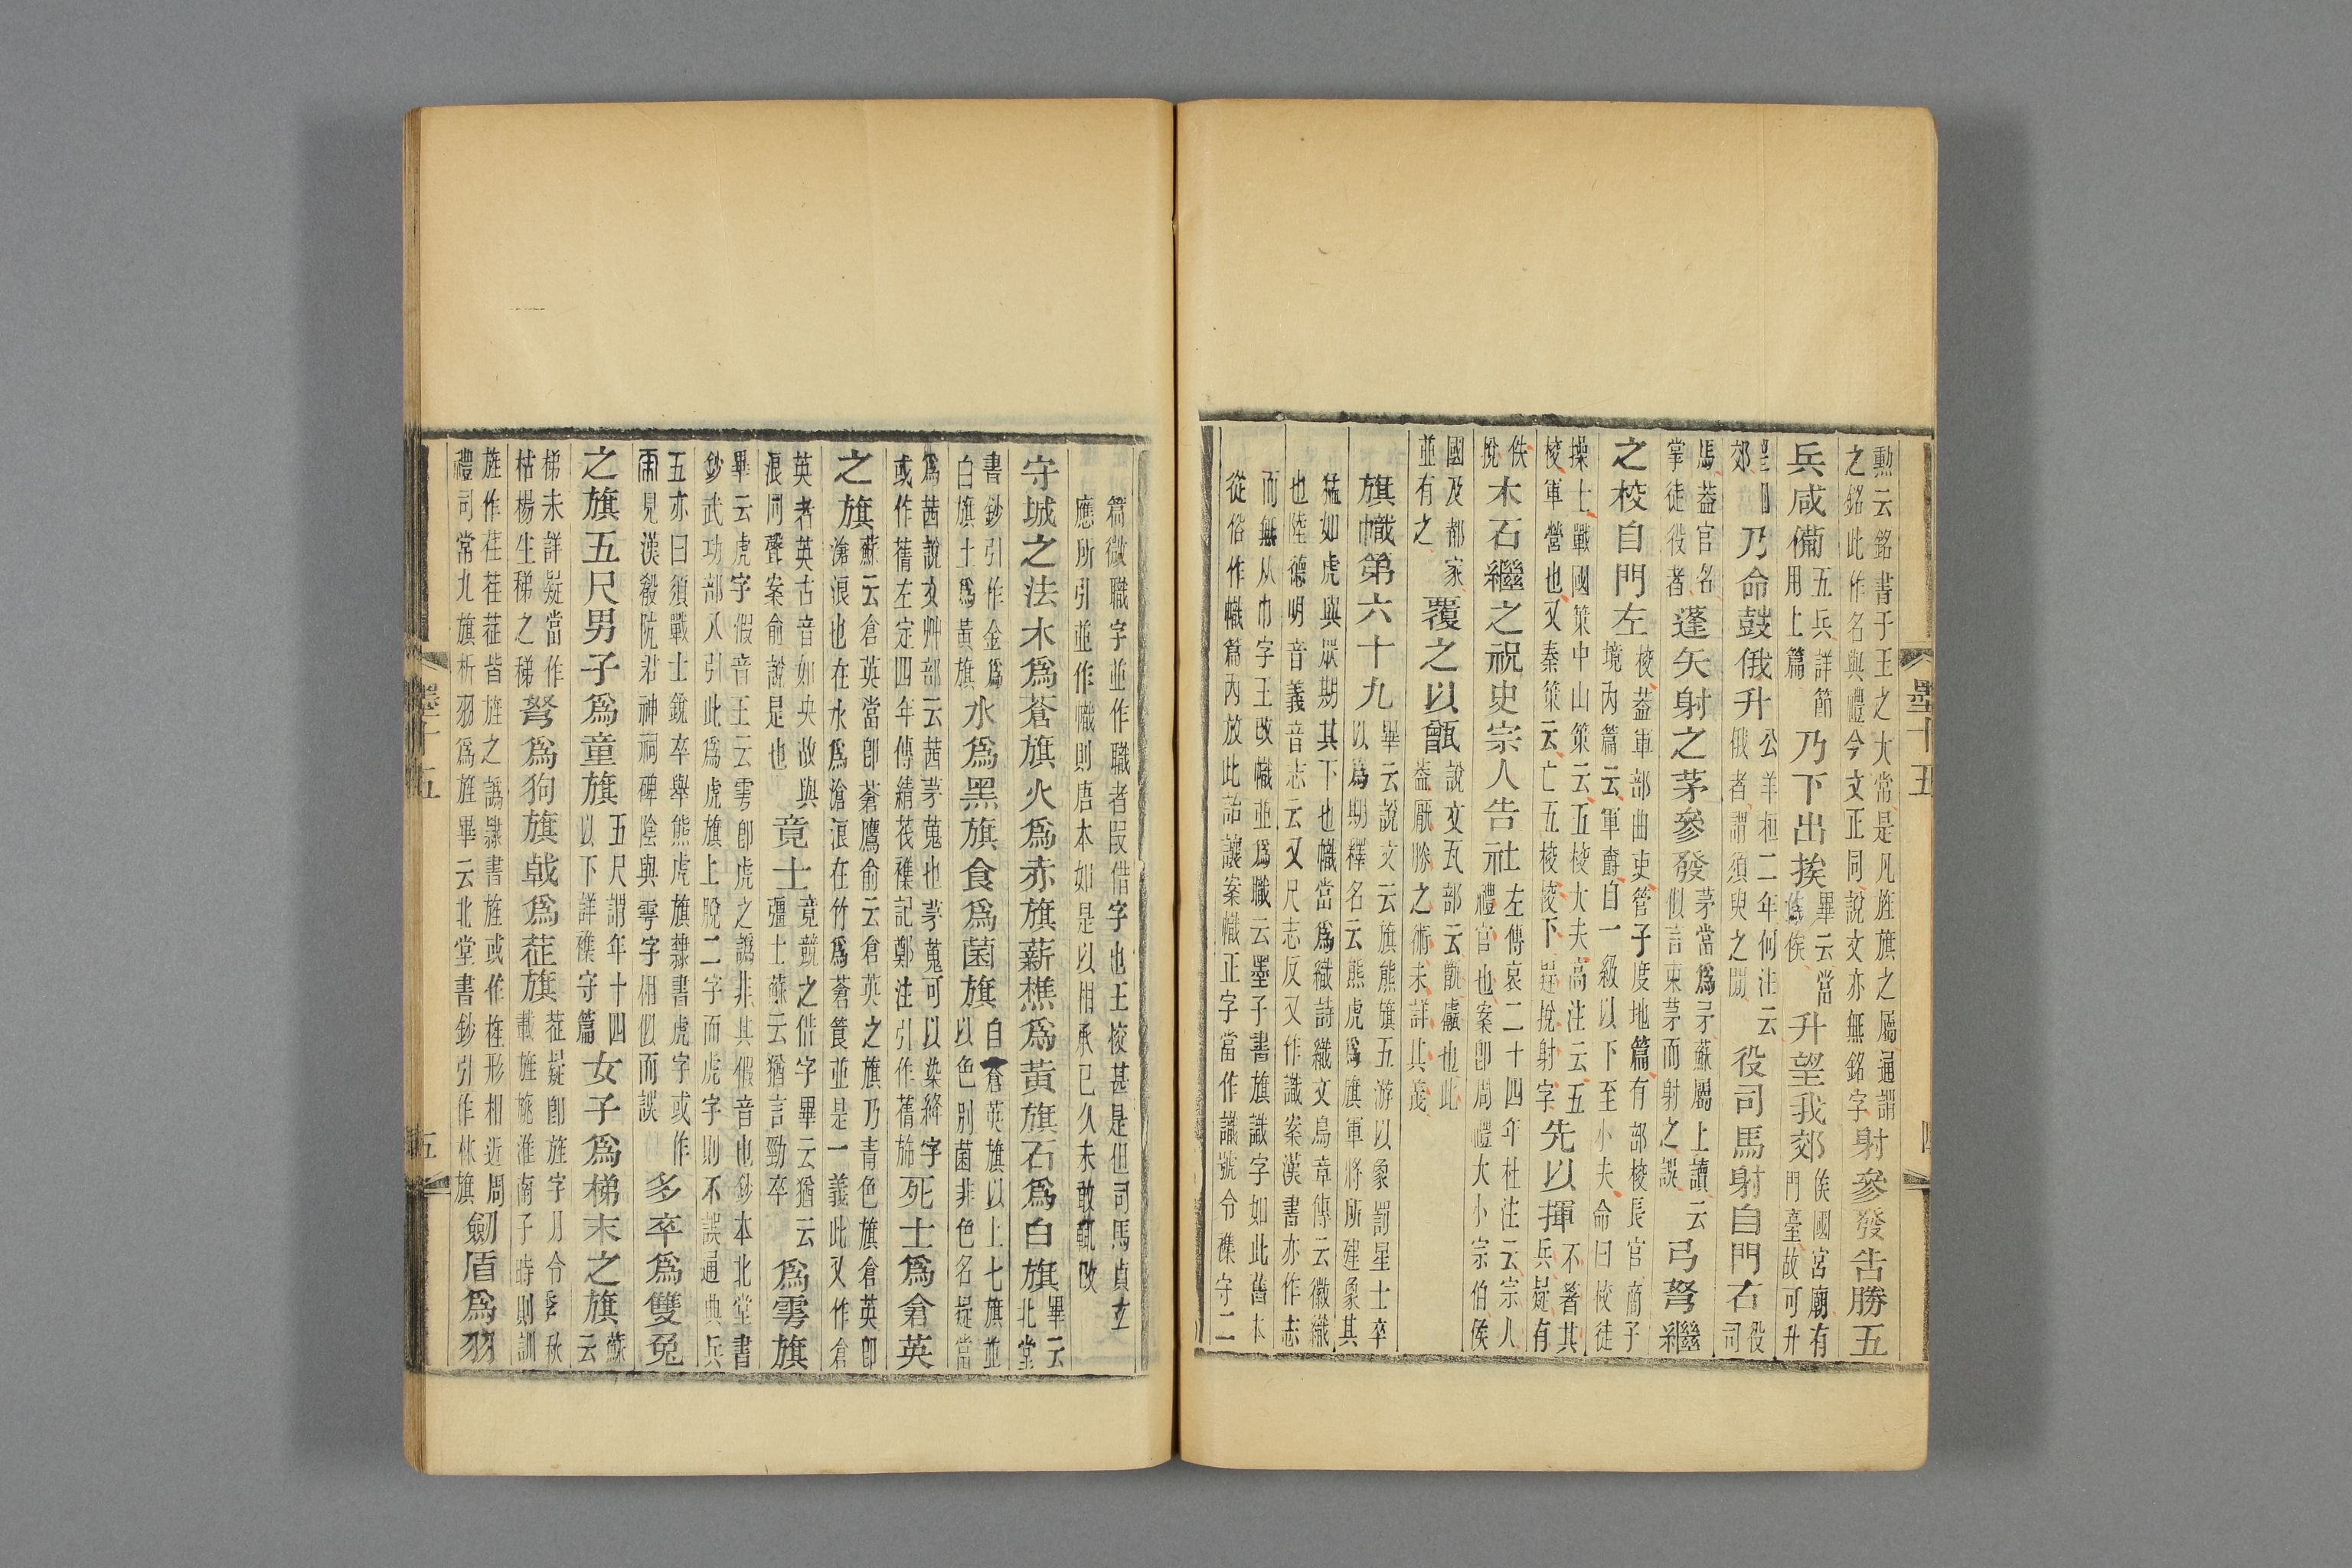 勲云銘書于王之大常是凡旌旗之屬通謂
之銘此作名與禮今文正同說文亦無銘字射參發告勝五
兵咸備五兵詳節
用上篇乃下出挨畢云當
爲俟升望我郊俟國宮廟有
門臺故可升
望
郊乃命鼓俄升公羊桓二年何注云
俄者謂須臾之閒役司馬射自門右役
司
馬蓋官名
掌徒役者蓬矢射之茅參發茅當爲矛蘇屬上讀云
似言束茅而射之誤弓弩繼
之校自門左校蓋軍部曲吏管子度地篇有部校長官商子
境內篇云軍爵自一級以下至小夫命曰校徒
操士戰國策中山策云五校大夫高注云五
校軍營也又秦策云亡五校校下疑挩射字先以揮不箸其
兵疑有
佚
挩木石繼之祝史宗人告社左傳哀二十四年杜注云宗人
禮官也案卽周禮大小宗伯侯
國及都家
並有之覆之以甑說文瓦部云甑甗也此
蓋厭勝之術未詳其義
旗幟第六十九畢云說文云旗熊旗五游以象罰星士卒
以爲期釋名云熊虎爲旗軍將所建象其
猛如虎與眾期其下也幟當爲織詩織文鳥章傳云徽織
也陸德明音義音志云又尺志反又作識案漢書亦作志
而無从巾字王改幟並爲職云墨子書旗識字如此舊本
從俗作幟篇內放此詒讓案幟正字當作識號令襍守二
篇微職字並作職者叚借字也王校甚是但司馬貞立
應所引並作幟則唐本如是以相承已久未敢輒改
守城之法木爲蒼旗火爲赤旗薪樵爲黃旗石爲白旗畢云
北堂
書鈔引作金爲
白旗土爲黃旗水爲黑旗食爲菌旗自蒼英旗以上七旗並
以色別菌非色名疑當
爲茜說文艸部云茜茅蒐也茅蒐可以染絳字
或作蒨左定四年傳綪茷襍記鄭注引作蒨旆死士爲倉英
之旗蘇云倉英當卽蒼鷹俞云倉英之旗乃青色旗倉英卽
滄浪也在水爲滄浪在竹爲蒼筤並是一義此又作倉
英者英古音如央故與
浪同聲案俞說是也竟士竟競之借字畢云猶云
彊士蘇云猶言勁卒爲雩旗
畢云虎字假音王云雩卽虎之譌非其假音也鈔本北堂書
鈔武功部八引此爲虎旗上脫二字而虎字則不誤通典兵
五亦曰須戰士銳卒舉熊虎旗隸書虎字或作
䨒見漢殽阬君神祠碑陰與雩字相似而誤多卒爲雙兔
之旗五尺男子爲童旗五尺謂年十四
以下詳襍守篇女子爲梯末之旗蘇
云
梯未詳疑當作
枯楊生稊之稊弩爲狗旗戟爲荏旗荏疑卽旌字月令季秋
載旌旐淮南子時則訓
旌作荏荏荏皆旌之譌隸書旌或作㧾形相近周
禮司常九旗析羽爲旌畢云北堂書鈔引作林旗劒盾爲羽
墨十五
四
墨十五
五